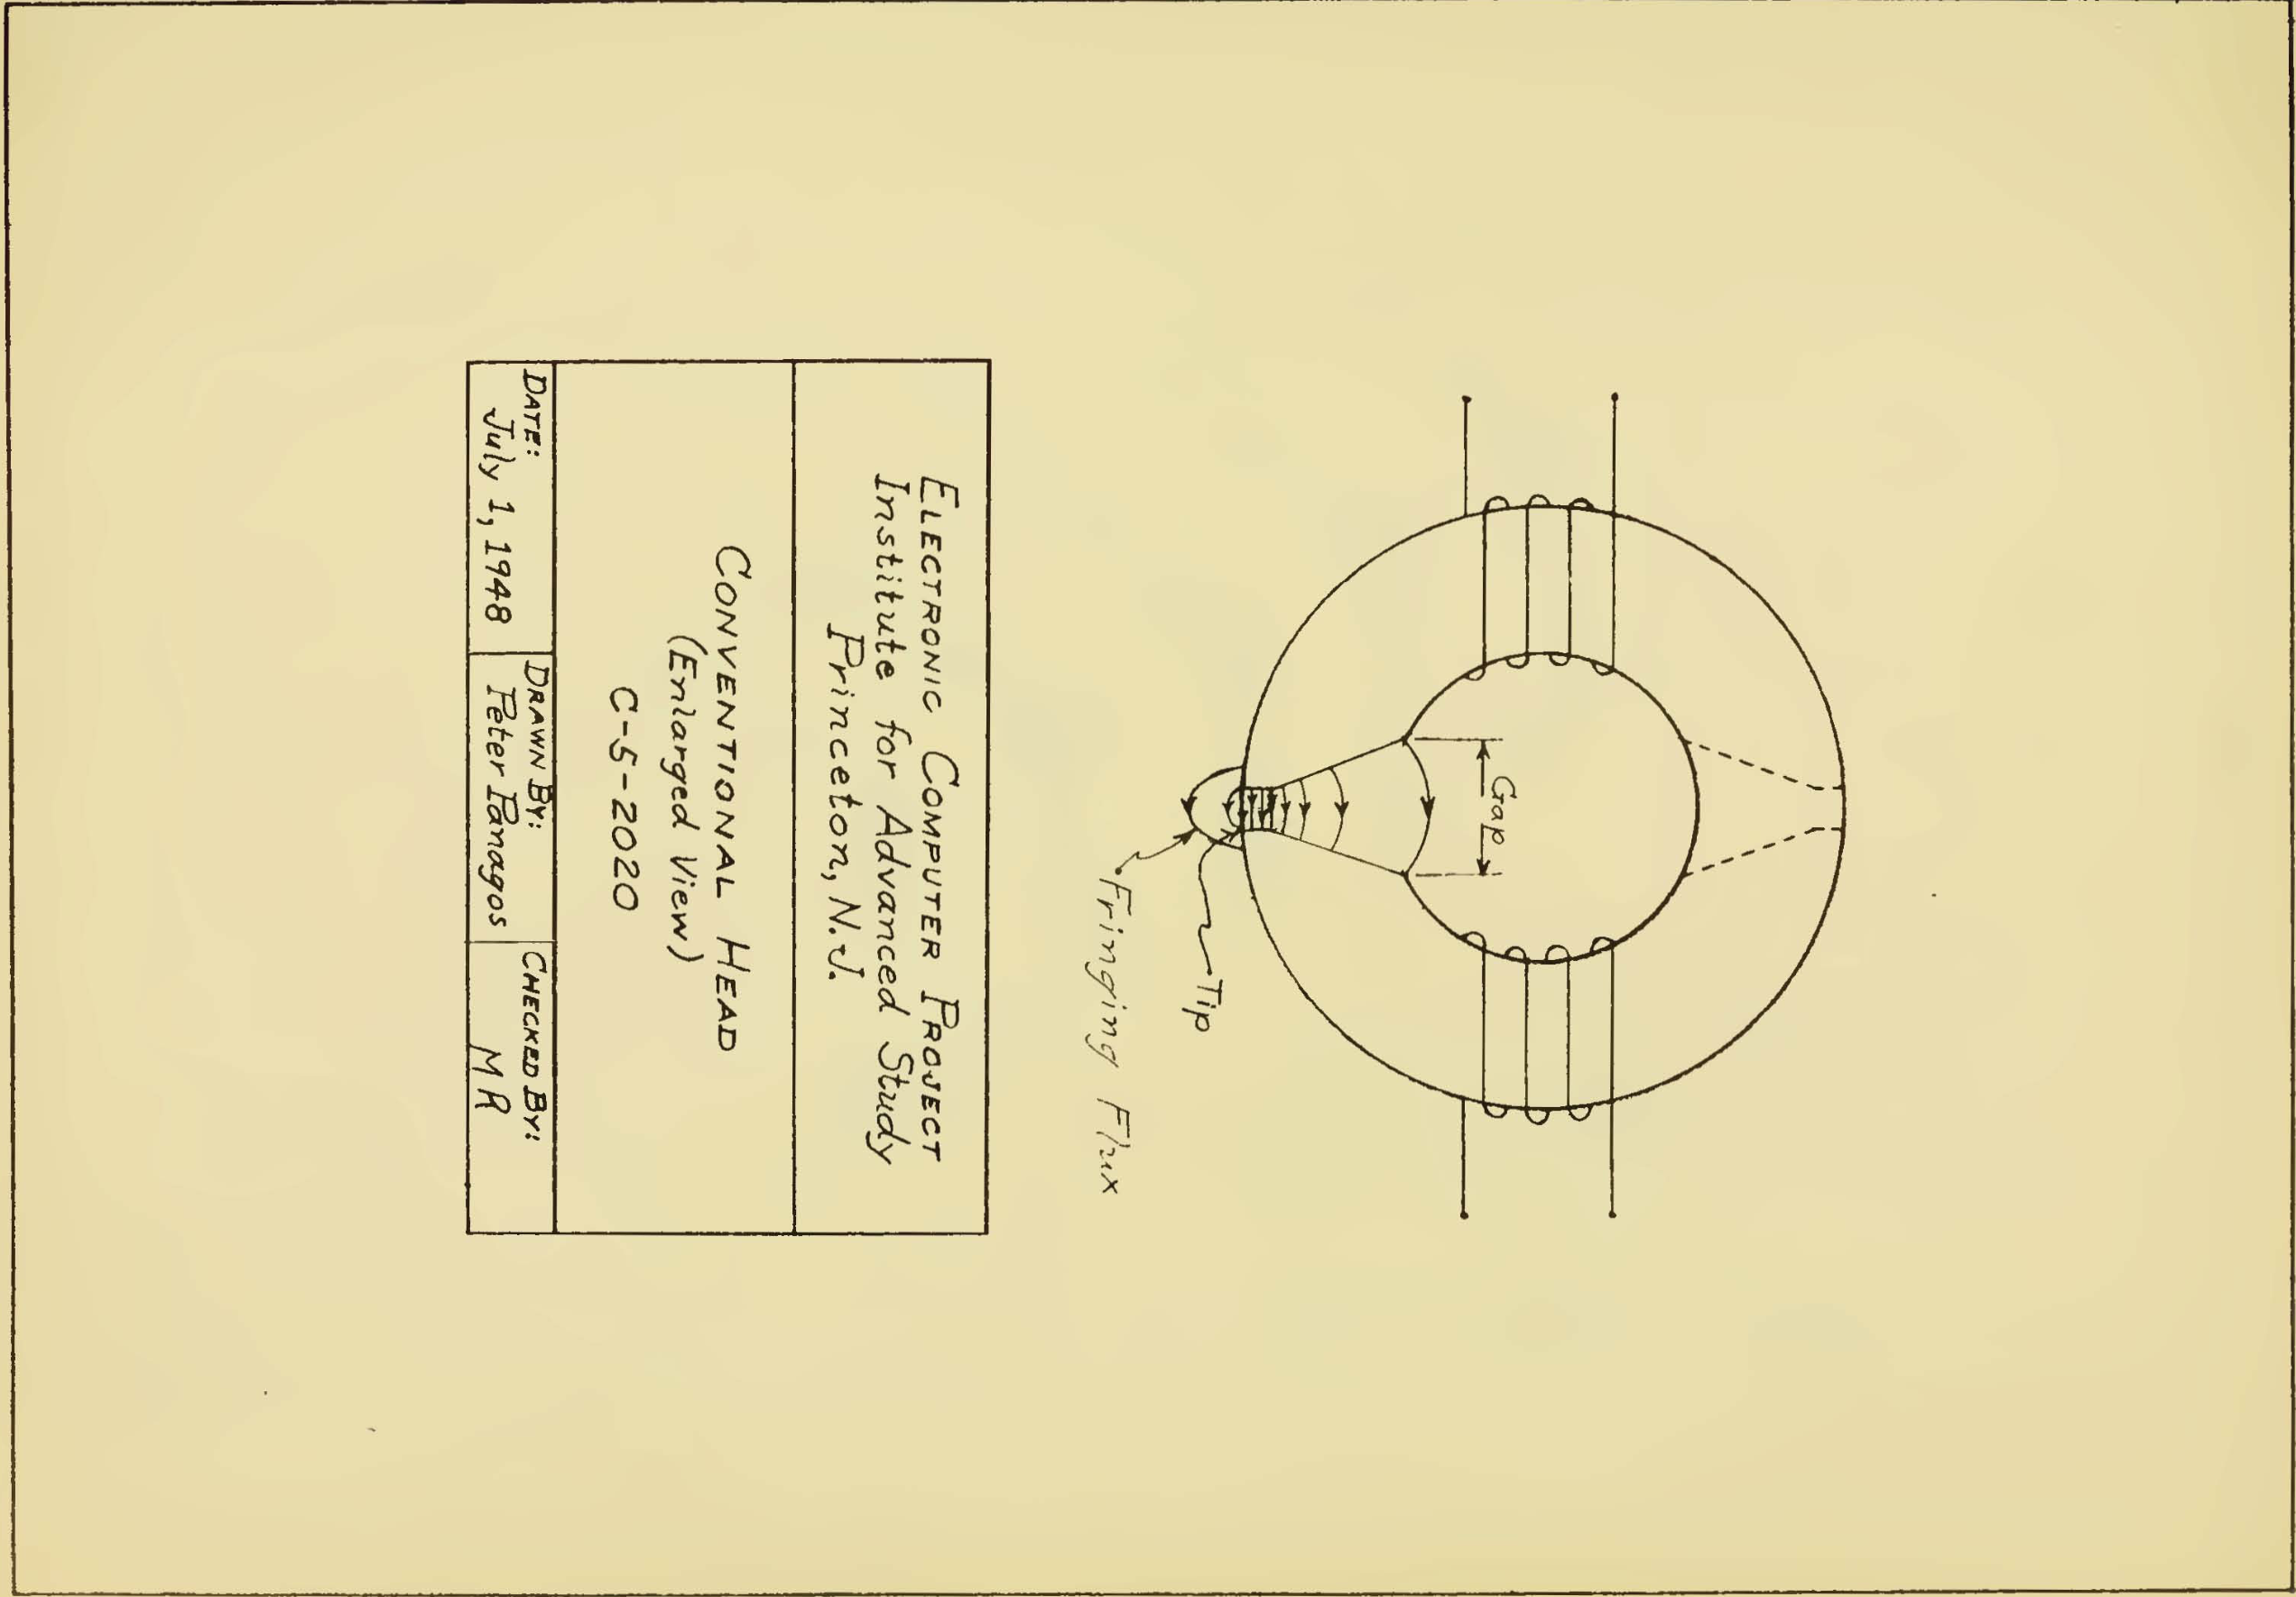 Gap
Tip
Fringing Flux
ELECTRONIC COMPUTER PROJECT
Institute for Advanced Study
Princeton, N.J.
CONVENTIONAL HEAD
(Enlarged View)
C-5-2020
DATE:
July 1, 1948
DRAWN BY:
Peter Panagos
CHECKED BY:
MR